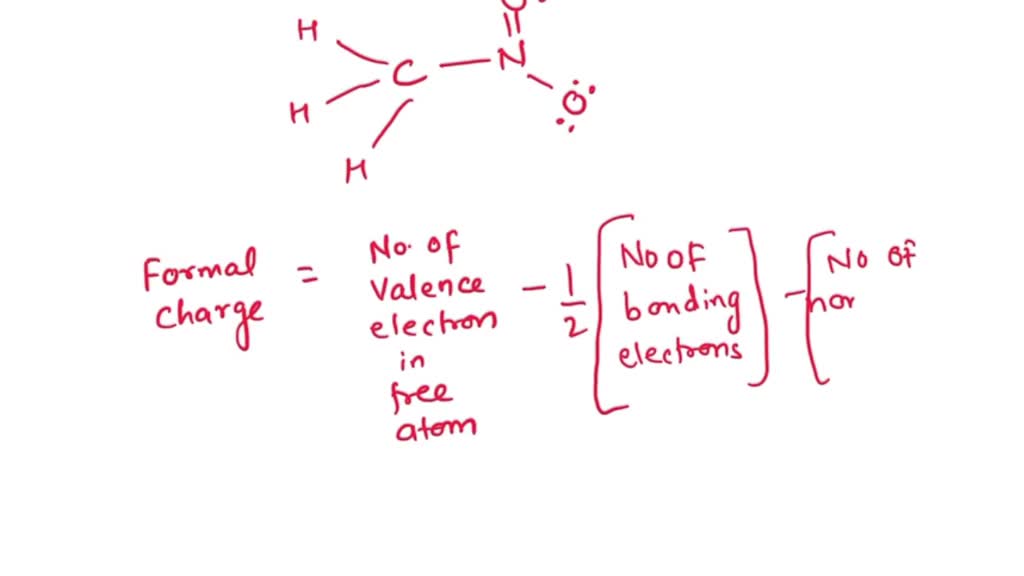 H
C — N = O
H
O
H
Formal charge = No. of Valence electron in free atom - 1/2 [No of bonding electrons] - [No of nor